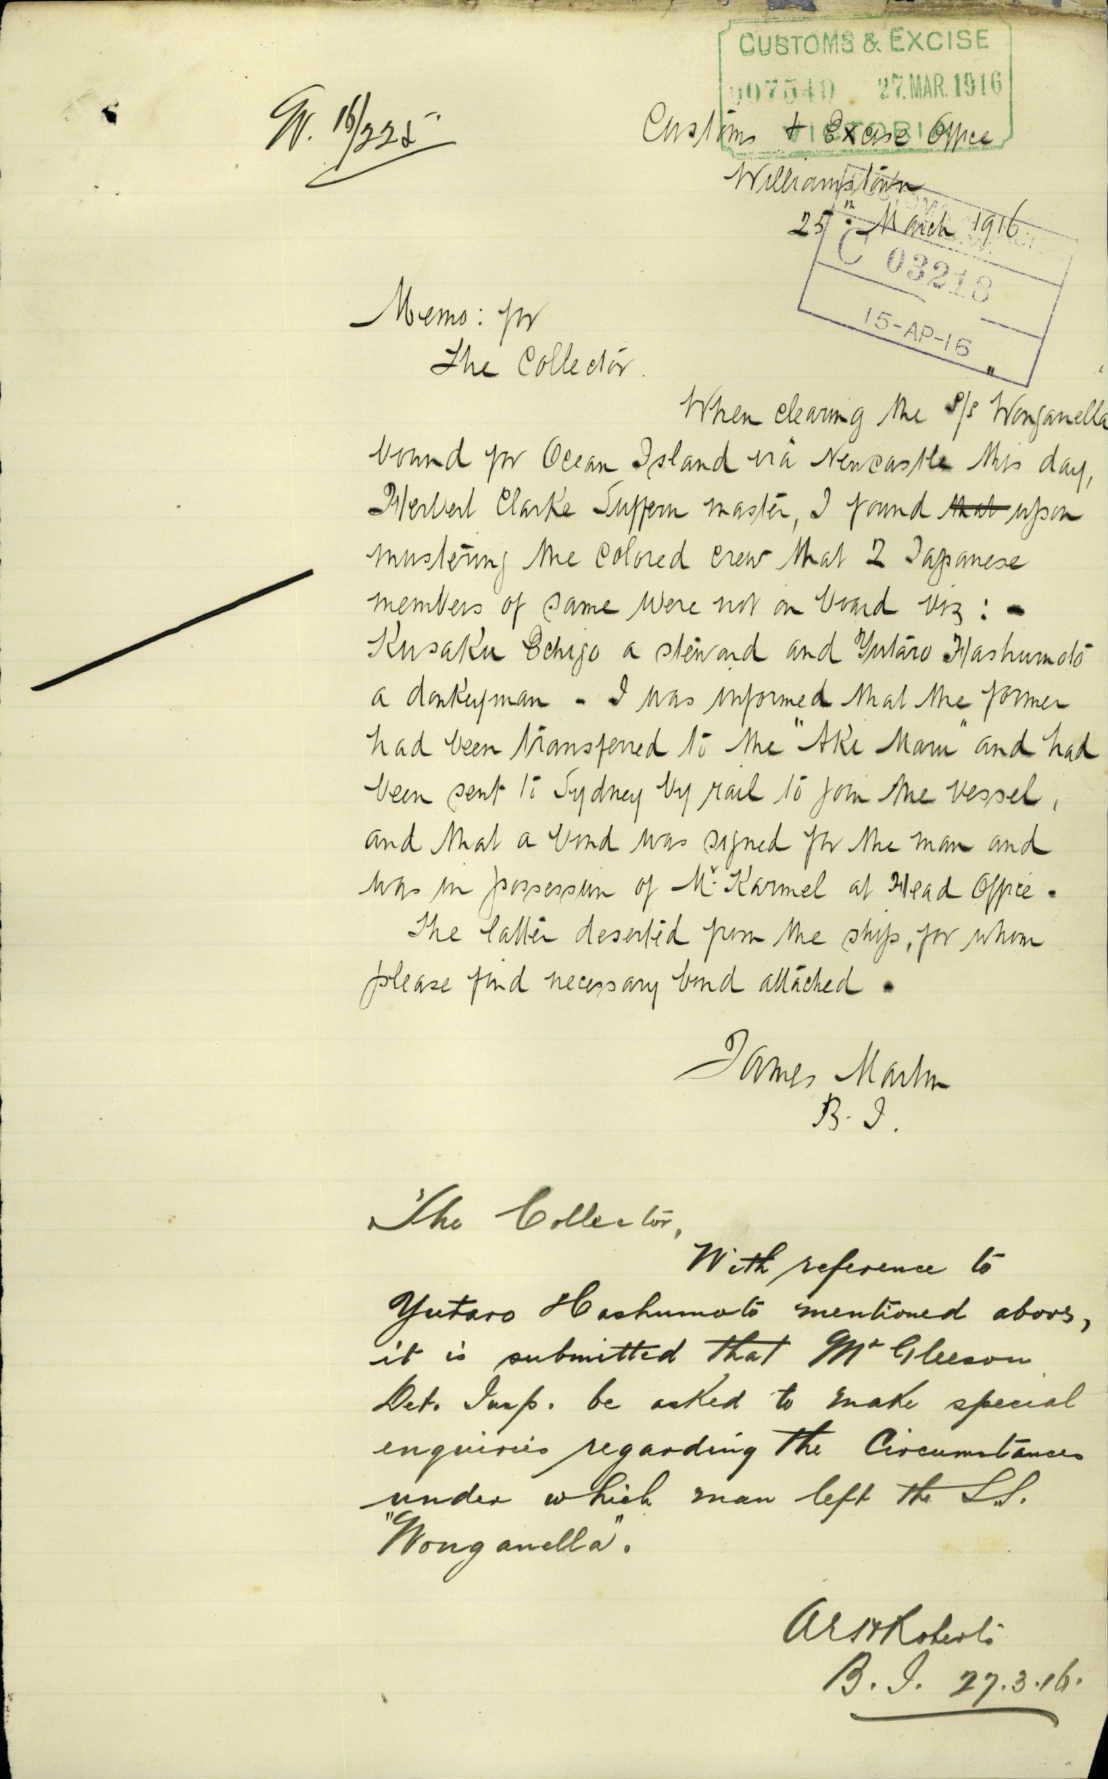 CUSTOMS & EXCISE
007540 27.MAR.1916
VICTORIA
W. 16/225
Customs & Excise Office
Williamstown
25th March 1916
C 03218
15-AP-16
Memo: for
The Collector.
When clearing the s/s "Wonganella"
bound for Ocean Island via Newcastle this day,
Herbert Clarke Suffern master, I found that upon
mustering the colored crew that 2 Japanese
members of same were not on board viz: -
Kusaku Echigo a steward and Yutaro Hashumoto
a donkeyman - I was informed that the former
had been transferred to the "Aki Maru" and had
been sent to Sydney by rail to join the vessel,
and that a bond was signed for the man and
was in possession of Mr. Karmel at Head Office.
The latter deserted from the ship, for whom
please find necessary bond attached.
James Martin
B. I.
The Collector,
With reference to
Yutaro Hashumoto mentioned above,
it is submitted that Mr Gleeson
Det. Insp. be asked to make special
enquiries regarding the Circumstances
under which man left the S.S.
"Wonganella".
Roberts
B. I. 27.3.16.